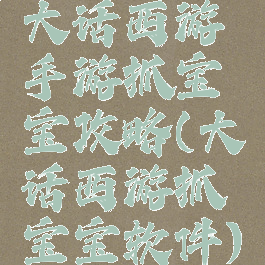 大话西游
手游抓宝
宝攻略(大
话西游抓
宝宝软件)